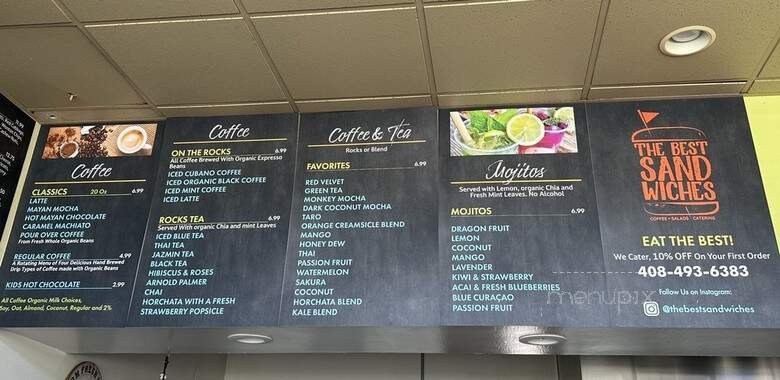 Coffee
CLASSICS 20 Oz 6.99
LATTE
MAYAN MOCHA
HOT MAYAN CHOCOLATE
CARAMEL MACHIATO
POUR OVER COFFEE
From Fresh Whole Organic Beans
REGULAR COFFEE 4.99
A Rotating Menu of Four Delicious Hand Brewed
Drip Types of Coffee made with Organic Beans
KIDS HOT CHOCOLATE 2.99
All Coffee Organic Milk Choices,
Soy, Oat, Almond, Coconut, Regular and 2%
Coffee
ON THE ROCKS 6.99
All Coffee Brewed With Organic Expresso
Beans
ICED CUBANO COFFEE
ICED ORGANIC BLACK COFFEE
ICED MINT COFFEE
ICED LATTE
ROCKS TEA 6.99
Served With organic Chia and mint Leaves
ICED BLUE TEA
THAI TEA
JAZMIN TEA
BLACK TEA
HIBISCUS & ROSES
ARNOLD PALMER
CHAI
HORCHATA WITH A FRESH
STRAWBERRY POPSICLE
Coffee & Tea
Rocks or Blend
FAVORITES 6.99
RED VELVET
GREEN TEA
MONKEY MOCHA
DARK COCONUT MOCHA
TARO
ORANGE CREAMSICLE BLEND
MANGO
HONEY DEW
THAI
PASSION FRUIT
WATERMELON
SAKURA
COCONUT
HORCHATA BLEND
KALE BLEND
Mojitos
Served with Lemon, organic Chia and
Fresh Mint Leaves. No Alcohol
MOJITOS 6.99
DRAGON FRUIT
LEMON
COCONUT
MANGO
LAVENDER
KIWI & STRAWBERRY
ACAI & FRESH BLUEBERRIES
BLUE CURAÇAO
PASSION FRUIT
THE BEST
SAND
WICHES
COFFEE • SALADS • CATERING
EAT THE BEST!
We Cater, 10% OFF On Your First Order
408-493-6383
Follow Us on Instagram:
@thebestsandwiches
menupix